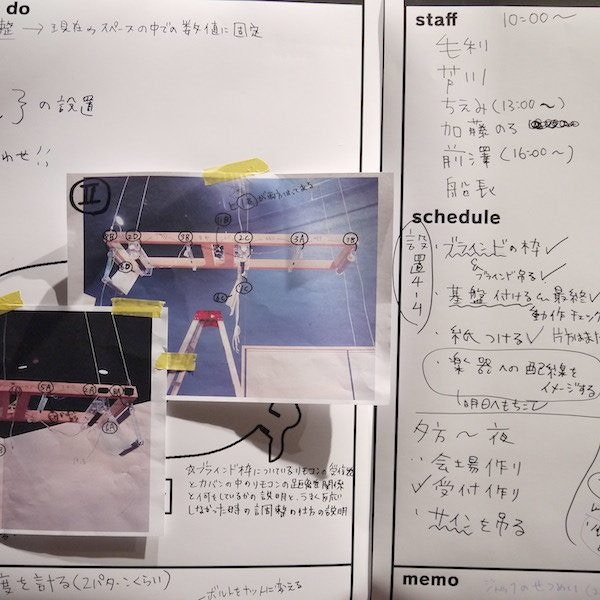 do
整 → 現在のスペースの中での数値に固定
の設置
わせ!!
II
1B
2C
3B
3A
2D
1B
5A
6A
※ブラインド枠についているリモコンの受信機
とカバンの中のリモコンの距離関係
と何をしているかの説明と、うまく反応
しなかった時の調整の仕方の説明
度を計る(2パターンくらい)
ボルトをナットに変える
staff
10:00〜
毛利
芦川
ちえみ(13:00〜)
加藤のろ
前澤(16:00〜)
船長
schedule
設置4-4
・ブラインドの枠✓
&ブラインド吊る✓
・基盤付ける 最終✓
動作チェック
・紙つける✓
・楽器への配線を
イメージする
明日へもちこし
夕方〜夜
・会場作り
✓受付作り
・サインを吊る
memo